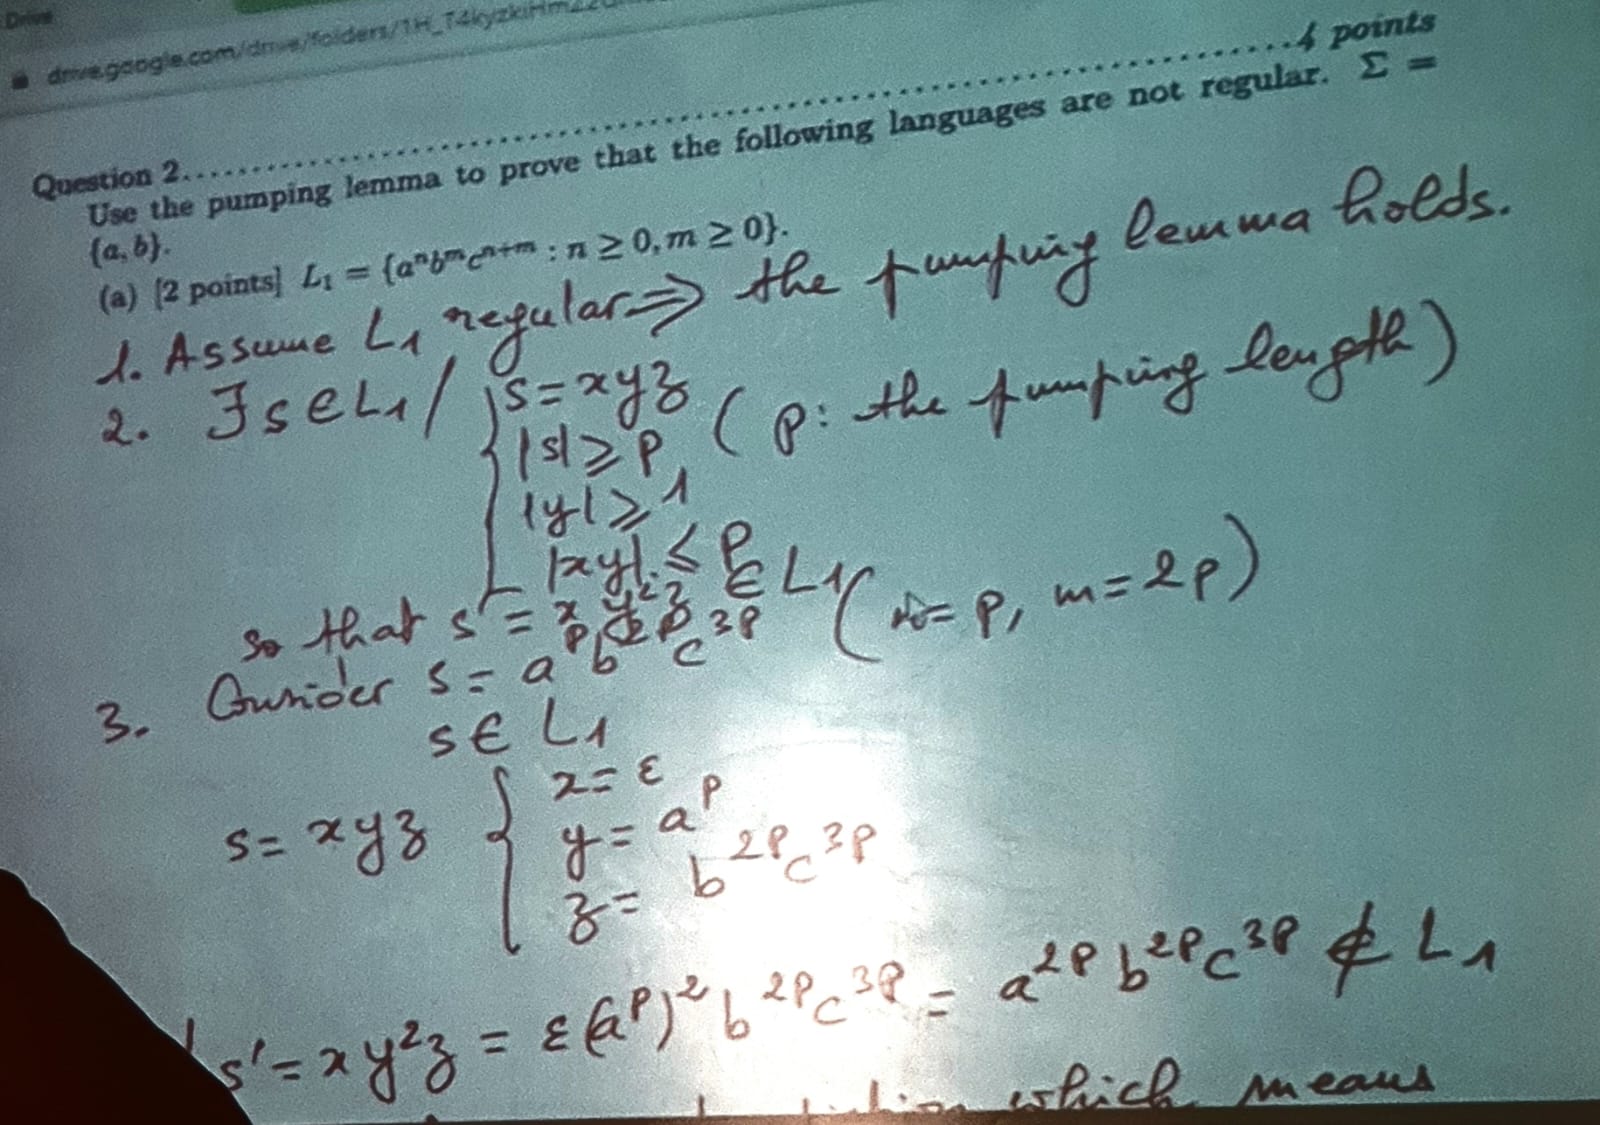 Drive
drive.google.com/drive/folders/1H_T4kyzkiHm
Question 2 .......... 4 points
Use the pumping lemma to prove that the following languages are not regular. Σ =
{a, b}.
(a) [2 points] L₁ = {aⁿbᵐcⁿ⁺ᵐ : n ≥ 0, m ≥ 0}.
1. Assume L₁ regular ⇒ the pumping lemma holds.
2. ∃ s ∈ L₁ / { s = xyz
|s| ≥ p, (p: the pumping length)
|y| ≥ 1
|xy| ≤ p
so that s' = xy²z ∈ L₁
3. Consider s = aᵖb²ᵖc³ᵖ (n = p, m = 2p)
s ∈ L₁
s = xyz { x = ε
y = aᵖ
z = b²ᵖc³ᵖ
s' = xy²z = ε(aᵖ)²b²ᵖc³ᵖ = a²ᵖb²ᵖc³ᵖ ∉ L₁
which means